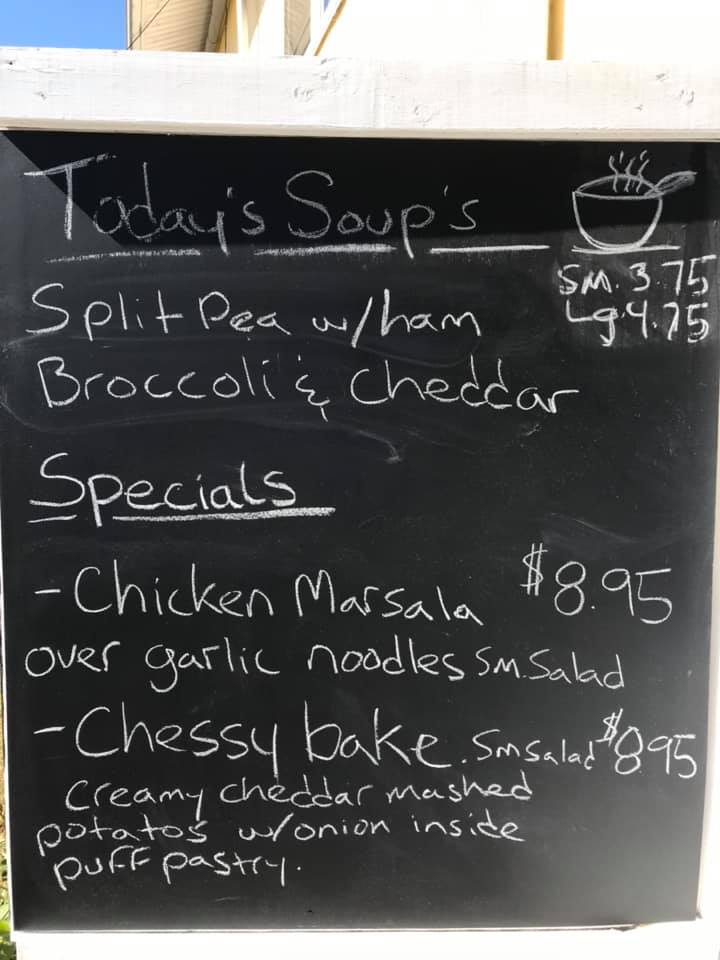 Today's Soup's
Sm. 3.75
Lg. 4.75
Split Pea w/ham
Broccoli & Cheddar
Specials
- Chicken Marsala $8.95
over garlic noodles Sm. Salad
- Chessy bake. Sm Salad $8.95
Creamy cheddar mashed
potatos w/onion inside
puff pastry.